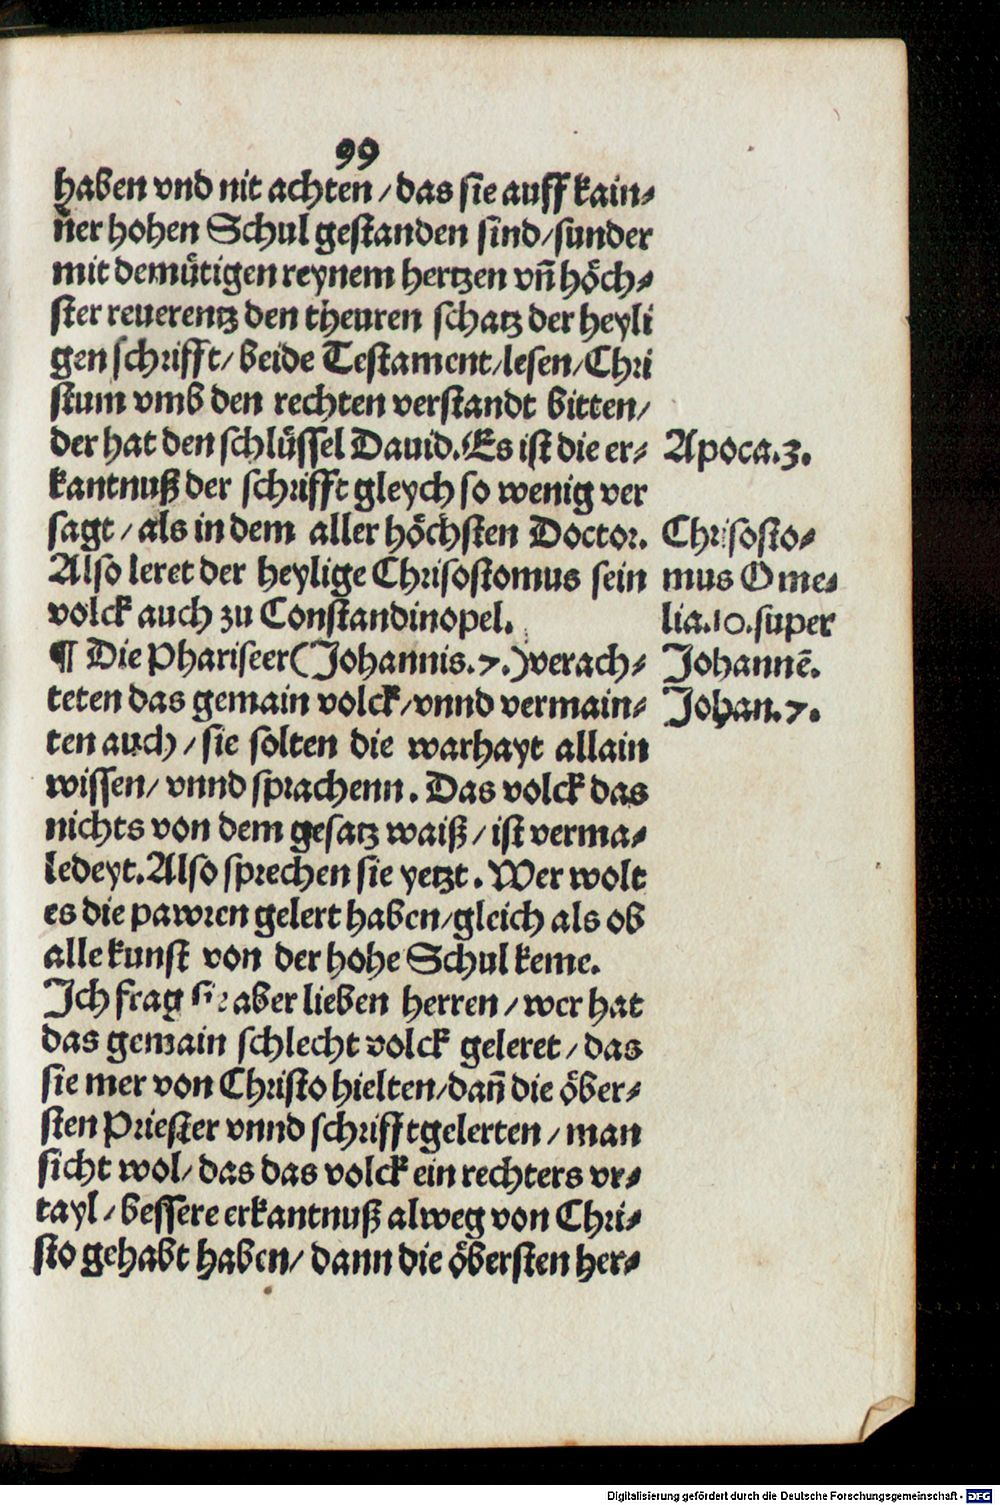 99
haben vnd nit achten / das sie auff kain⸗
ner hohen Schul gestanden sind / sunder
mit demütigen reynem hertzen vn̄ höch⸗
ster reuerentz den theuren schatz der heyli
gen schrifft / beide Testament / lesen / Chri
stum vmb den rechten verstandt bitten /
der hat den schlüssel Dauid. Es ist die er⸗
kantnuß der schrifft gleych so wenig ver
sagt / als in dem aller höchsten Doctor.
Also leret der heylige Chrisostomus sein
volck auch zu Constandinopel.
¶ Die Phariseer (Johannis. 7.) verach⸗
teten das gemain volck / vnnd vermain⸗
ten auch / sie solten die warhayt allain
wissen / vnnd sprachenn. Das volck das
nichts von dem gesatz waiß / ist verma⸗
ledeyt. Also sprechen sie yetzt. Wer wolt
es die pawren gelert haben / gleich als ob
alle kunst von der hohe Schul keme.
Ich frag sie aber lieben herren / wer hat
das gemain schlecht volck geleret / das
sie mer von Christo hielten / dan̄ die öber⸗
sten Priester vnnd schrifftgelerten / man
sicht wol / das das volck ein rechters vr⸗
tayl / bessere erkantnuß alweg von Chri⸗
sto gehabt haben / dann die öbersten her⸗
Apoca. 3.
Chrisosto⸗
mus Ome⸗
lia. 10. super
Johannē.
Johan. 7.
Digitalisierung gefördert durch die Deutsche Forschungsgemeinschaft - DFG